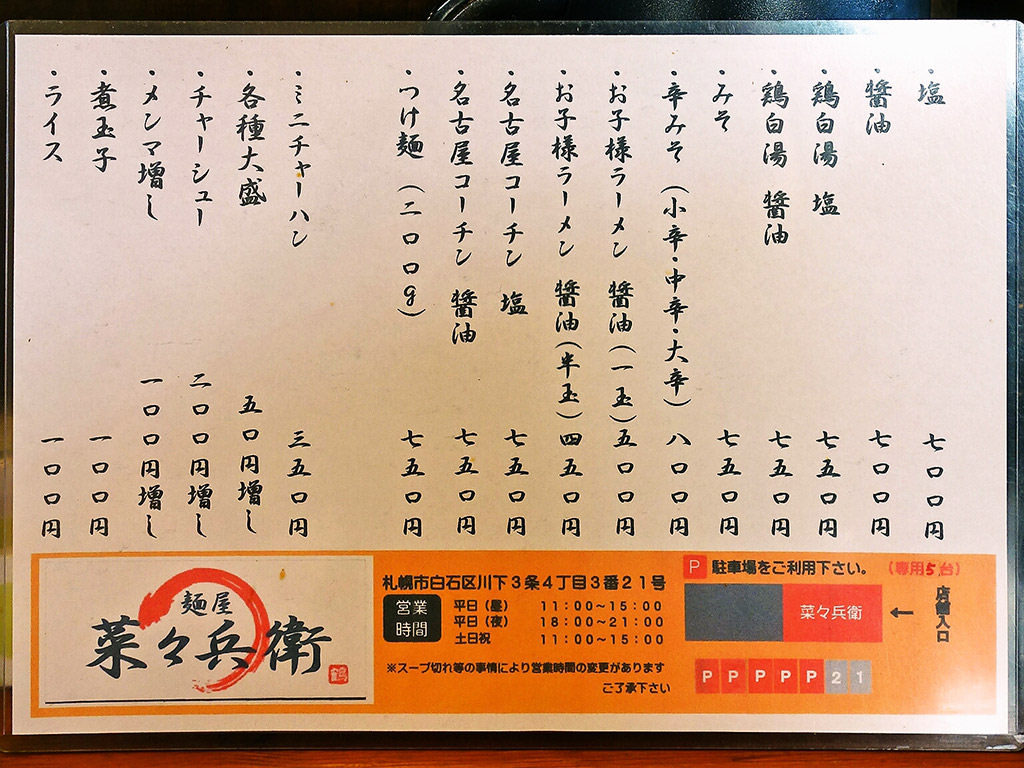 ・塩 七〇〇円
・醤油 七〇〇円
・鶏白湯 塩 七五〇円
・鶏白湯 醤油 七五〇円
・みそ 七五〇円
・辛みそ（小辛・中辛・大辛） 八〇〇円
・お子様ラーメン 醤油（一玉） 五〇〇円
・お子様ラーメン 醤油（半玉） 四五〇円
・名古屋コーチン 塩 七五〇円
・名古屋コーチン 醤油 七五〇円
・つけ麺（二〇〇g） 七五〇円
・ミニチャーハン 三五〇円
・各種大盛 五〇円増し
・チャーシュー 二〇〇円増し
・メンマ増し 一〇〇円増し
・煮玉子 一〇〇円
・ライス 一〇〇円
麺屋
菜々兵衛
鶴
札幌市白石区川下３条４丁目３番２１号
営業時間
平日（昼） １１：００〜１５：００
平日（夜） １８：００〜２１：００
土日祝 １１：００〜１５：００
※スープ切れ等の事情により営業時間の変更があります
ご了承下さい
P 駐車場をご利用下さい。（専用５台）
菜々兵衛
←
店舗入口
P P P P P 2 1